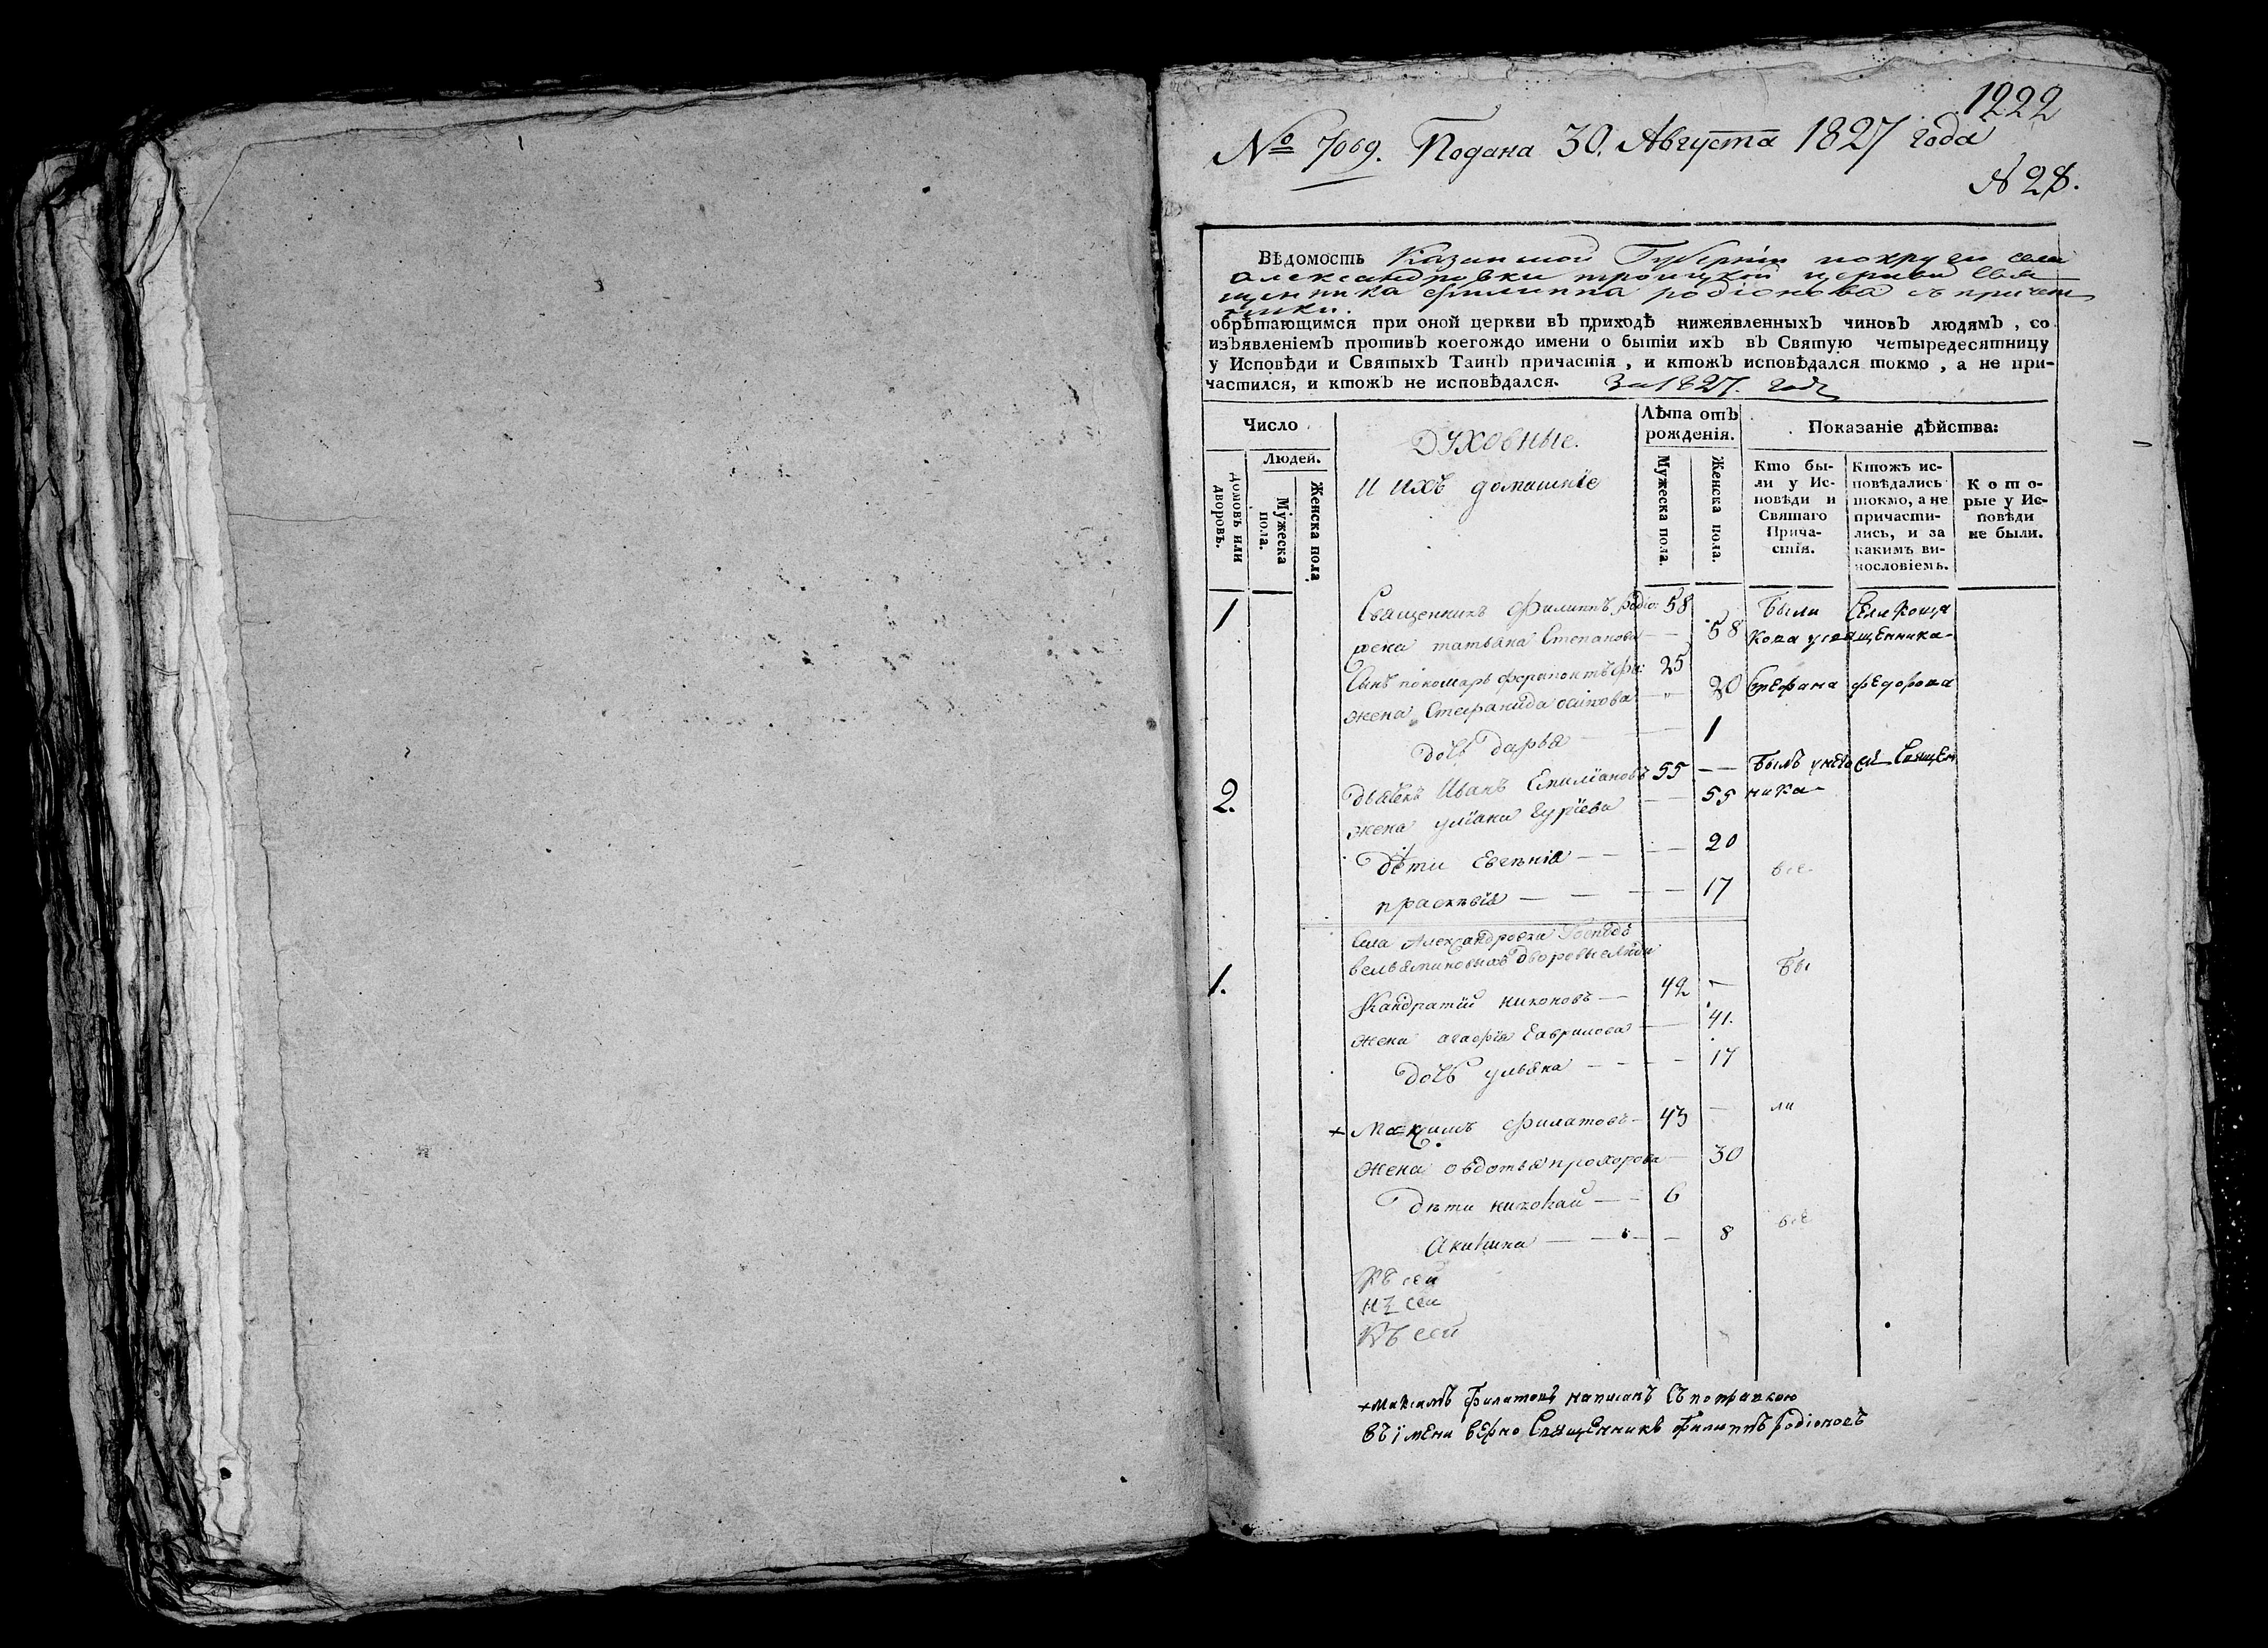 1222
№ 7069. Подана 30. Августа 1827 года
№ 28.
Вѣдомость Казанской Губерніи округи села
Александровки троицкой церкви Свя
щенника филиппа родіонова съ причет
ники.
обрѣтающимся при оной церкви въ приходѣ нижеявленныхъ чиновъ людямъ, со
изъявленіемъ противъ коегождо имени о бытіи ихъ въ Святую четыредесятницу
у Исповѣди и Святыхъ Таинъ причастія, и ктожъ исповѣдался токмо, а не при-
частился, и ктожъ не исповѣдался. За 1827. годъ
Число
Людей.
Домовъ или дворовъ.
Мужеска пола.
Женска пола
Духовные.
и ихъ домашніе
Лѣта отъ рожденія.
Мужеска пола.
Женска пола.
Показаніе дѣйства:
Кто бы-
ли у Ис-
повѣди и
Святаго
Прича-
стія.
Ктожъ ис-
повѣдались
токмо, а не
причасти-
лись, и за
какимъ ви-
нословіемъ.
Кото-
рые у Ис-
повѣди
не были.
1 Священникъ Филиппъ родіо: 58 Были Села
жена татьяна Степанова — 58 кова усвященника
Сынъ пономарь ферапонтъ Фи: 25
жена Стефанида осипова — 20 Стефана федорова
дочь дарья — 1
2. Дьячекъ Иванъ Емиліановъ 55 — Былъ унего Священ
жена уліана Гурїева — 55 ника
дѣти Евгенія — 20
прасковія — 17 все
Села Александровка Господъ
вельяминовыхъ дворовые люди
1. Кандратій никоновъ — 42 — Бы
жена агафія Гаврилова — 41.
дочь ульяна — 17
+ Максимъ Филатовъ — 43 — ли
жена овдотья прохорова — 30
дѣти николай — 6
Акилина — 8 все
Къ сей
къ сей
Къ сей
+ Максимъ Филатовъ написанъ Съ поправкою
въ імени вѣрно Священникъ Филиппъ родіоновъ